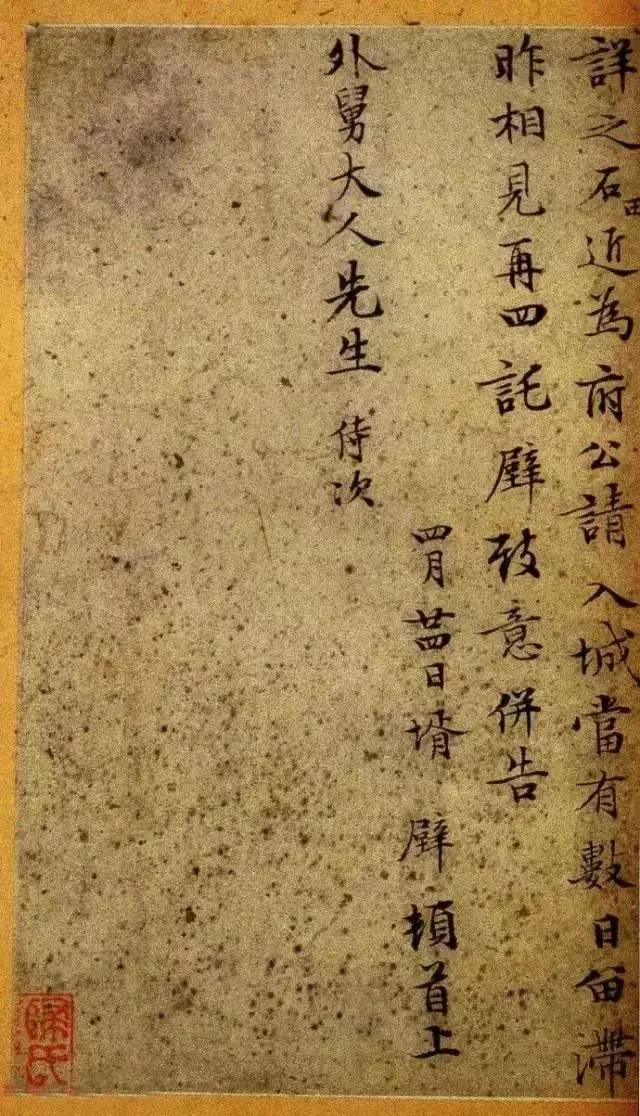 詳之石田近為府公請入城當有數日留滯
昨相見再四託壁致意併告
四月廿四日壻壁頓首上
外舅大人先生侍次